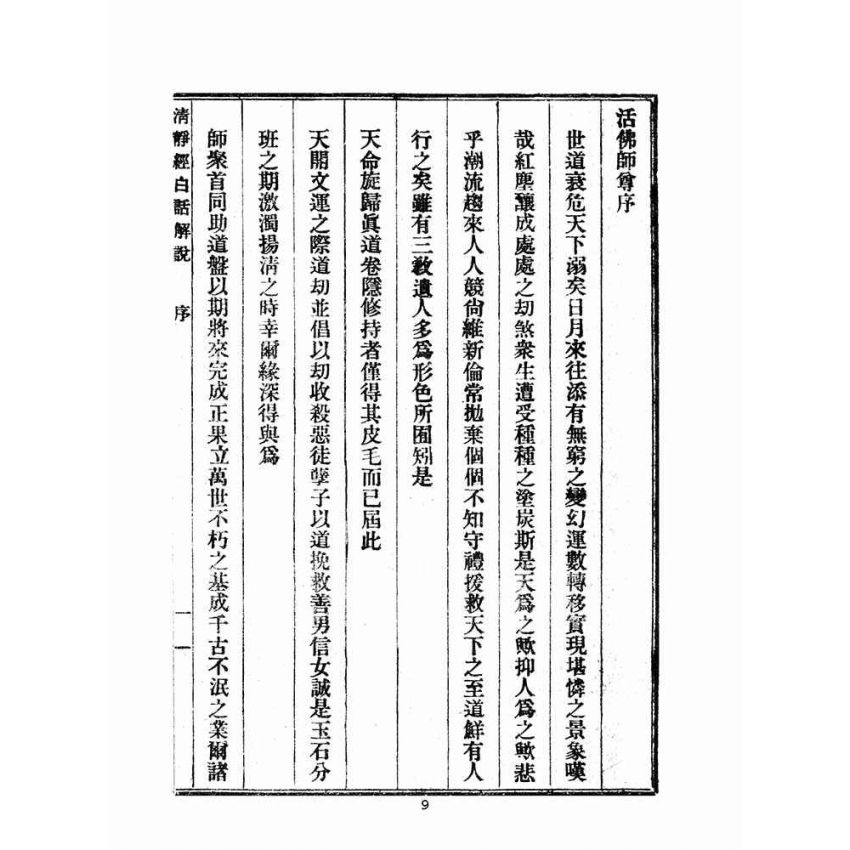 活佛師尊序
世道衰危天下溺矣日月來往添有無窮之變幻運數轉移實現堪憐之景象嘆
哉紅塵釀成處處之劫煞衆生遭受種種之塗炭斯是天爲之歟抑人爲之歟悲
乎潮流趨來人人競尙維新倫常拋棄個個不知守禮援救天下之至道鮮有人
行之矣雖有三敎遺人多爲形色所囿矧是
天命旋歸眞道卷隱修持者僅得其皮毛而已屆此
天開文運之際道劫並倡以劫收殺惡徒孽子以道挽救善男信女誠是玉石分
班之期激濁揚淸之時幸爾緣深得與爲
師聚首同助道盤以期將來完成正果立萬世不朽之基成千古不泯之業爾諸
淸靜經白話解說 序 一
9